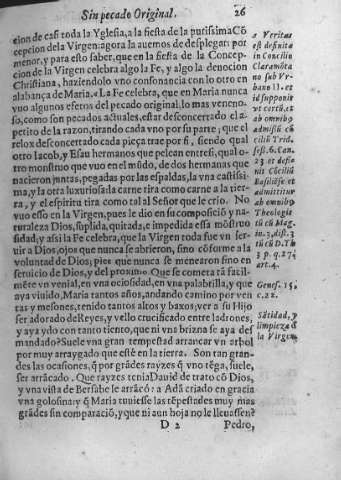 Sin pecado Original. 26
cion de casi toda la Yglesia, a la fiesta de la purissima Cõ
cepcion de la Virgen: agora la auemos de desplegar por
menor, y para esto saber, que en la fiesta de la Concep-
cion de la Virgen celebra algo la Fe, y algo la deuocion
Christiana, haziendolo vno consonancia con lo otro en
alabança de Maria. a La Fe celebra, que en Maria nunca
vuo algunos efetos del pecado original, lo mas veneno-
so, como son pecados actuales, estar desconcertado el a-
petito de la razon, tirando cada vno por su parte; que el
relox desconcertado cada pieça trae por si, siendo qual
otro Iacob, y Esau hermanos que pelean entre si, qual o-
tro monstruo que vuo en el mũdo, de dos hermanas que
nacieron juntas, pegadas por las espaldas, la vna castissi-
ma, y la otra luxuriosa: la carne tira como carne a la tier-
ra, y el espiritu tira como tal al Señor que le crio. No
vuo esso en la Virgen, pues le dio en su cõposiciõ y na-
turaleza Dios, suplida, quitada, e impedida essa mõstruo
sidad; y assi la Fe celebra, que la Virgen toda fue vn ser-
uir a Dios, ojos que nunca se abrieron, sino cõforme a la
voluntad de Dios; pies que nunca se menearon sino en
seruicio de Dios, y del proximo. Que se cometa tã facil-
mẽte vn venial, en vna ociosidad, en vna palabrilla, y que
aya viuido, Maria tantos años, andando camino por ven
tas y mesones, tenido tantos altos y baxos, ver a su Hijo
ser adorado de Reyes, y vello crucificado entre ladrones,
y aya ydo con tanto tiento, que ni vna brizna se aya des
mandado? Suele vna gran tempestad arrancar vn arbol
por muy arraygado que estè en la tierra. Son tan gran-
des las ocasiones, q̃ por grãdes rayzes q̃ vno tẽga, suele,
ser arrãcado. Que rayzes tenia Dauid de trato cõ Dios,
y vna vista de Bersabe le arrãcò: a Adã criado en gracia
vna golosina: y q̃ Maria tuuiesse las tẽpestades muy mas
grãdes sin comparaciõ, y que ni aun hoja no le lleuassen?
D 2 Pedro,
a Veritas
est definita
in Concilio
Claramõta
no sub Vr-
bano II. et
id supponit
vt certũ, et
ab omnibꝰ
admissũ cõ
ciliũ Trid.
sess. 6. Can.
23 et defi-
nis Cõciliũ
Basiliẽse et
admittitur
ab omnibꝰ
Theologis
cũ Mag.
in. 3. dist. 3
cũ D. Th
3 p. q. 27.
art. 4.
Genes. 15.
c. 22.
Sãtidad, y
limpieza d̃
la Virgen.